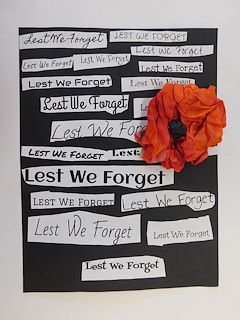 Lest We Forget
LEST WE FORGET
Lest We Forget
Lest We Forget
Lest We Forget
Lest We Forget
Lest We Forget
Lest We Forget
Lest We Forget
Lest We
Lest We Forget
Lest
Lest We Forget
Lest We Forget
Lest We Forget
Lest We Forget
Lest We Forget
Lest We Forget